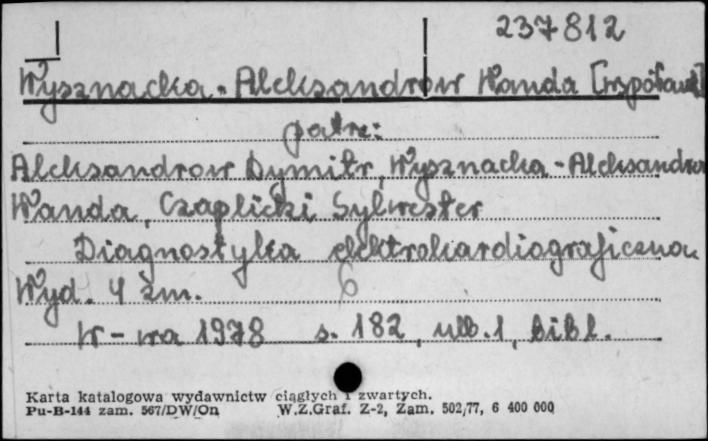 237812
Wysznacka-Aleksandrow Wanda [współaut]
patrz:
Aleksandrow Dymitr, Wysznacka-Aleksandrow
Wanda, Czaplicki Sylwester
Diagnostyka elektrokardiograficzna
Wyd. 4 zm. 6
W-wa 1978 s. 182, ulb. 1, bibl.
Karta katalogowa wydawnictw ciągłych i zwartych.
Pu-B-144 zam. 567/DW/On W.Z.Graf. Z-2, Zam. 502/77, 6 400 000